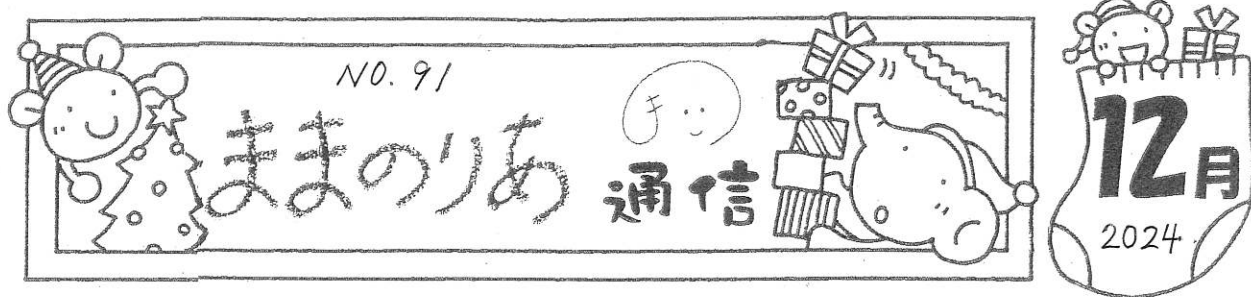 NO. 91
ままのりあ
ま
通信
12月
2024.